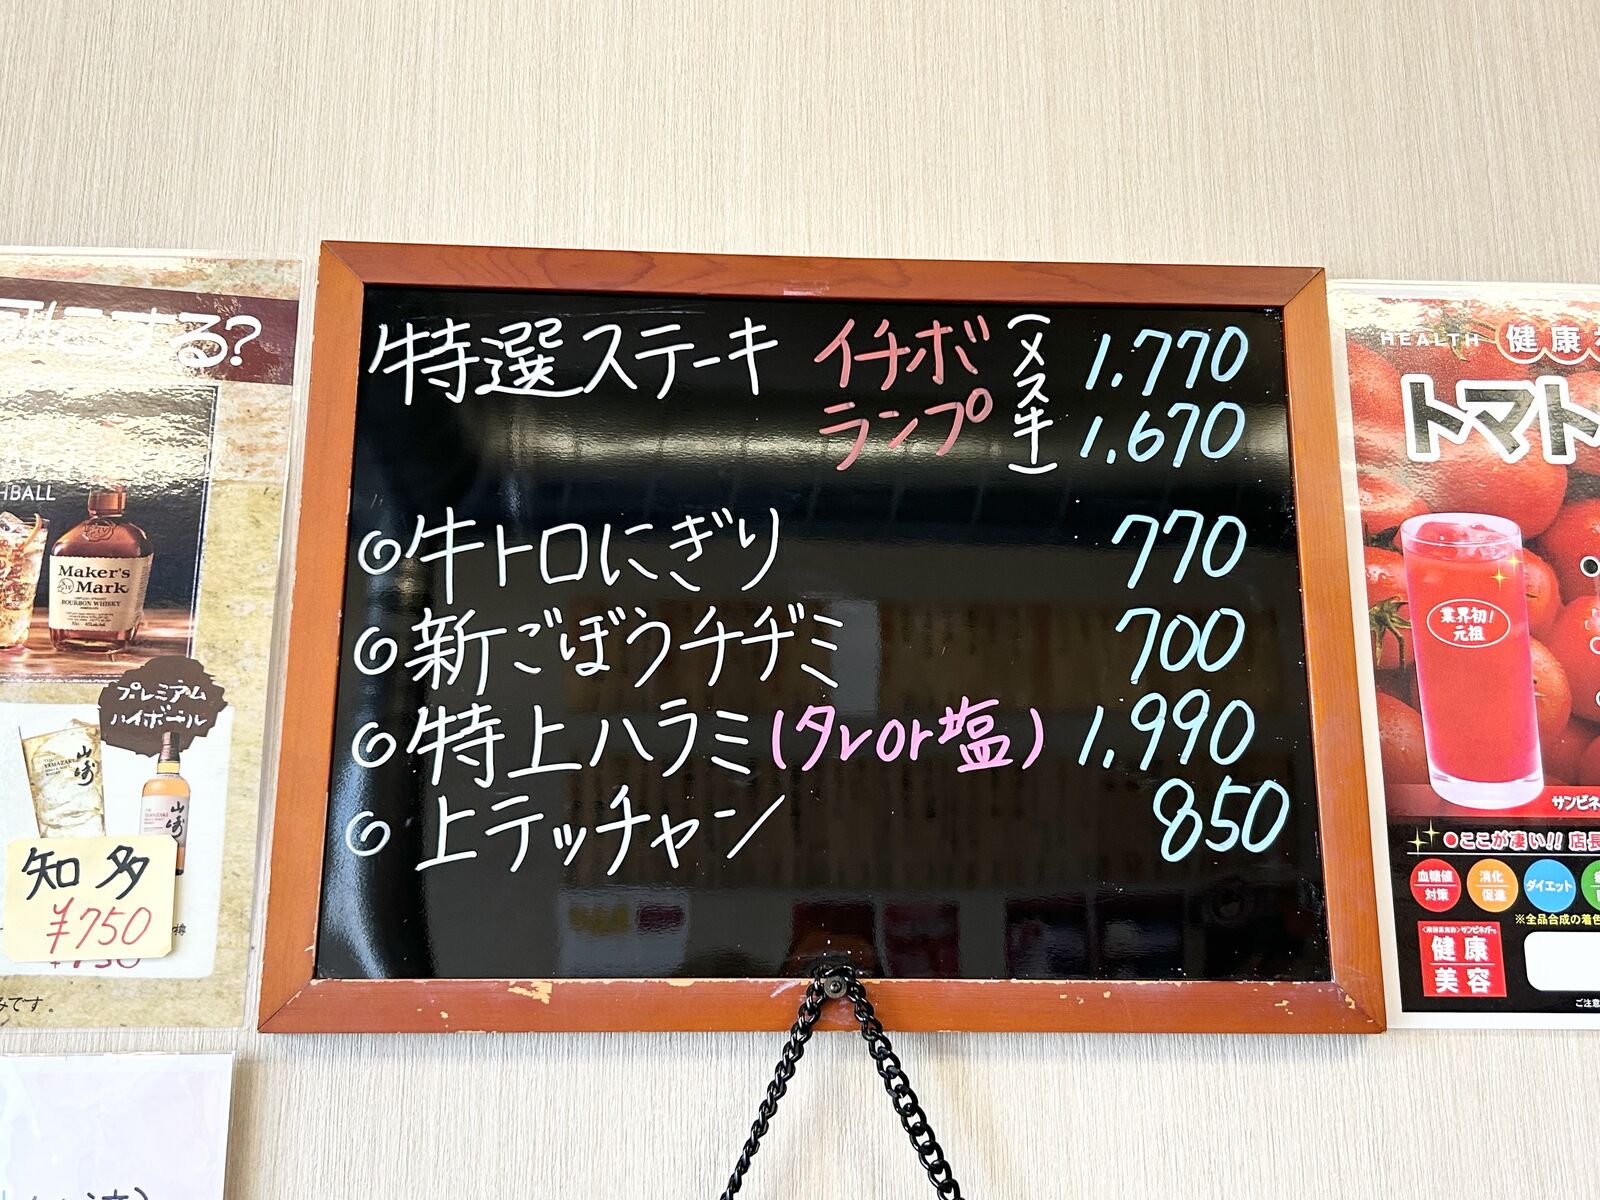 特選ステーキ イチボ (メス牛) 1.770
ランプ 1.670
◎牛トロにぎり 770
◎新ごぼうチヂミ 700
◎特上ハラミ(タレor塩) 1.990
◎上テッチャン 850
する?
HBALL
Maker's
Mark
BOURBON WHISKY
プレミアム
ハイボール
THE YAMAZAKI
山崎
山崎
知多
¥750
みです。
HEALTH 健康
トマト
業界初!
元祖
サンビネ
●ここが凄い!! 店長
血糖値
対策
消化
促進
ダイエット
※全品合成の着色
健康
美容
ご注意